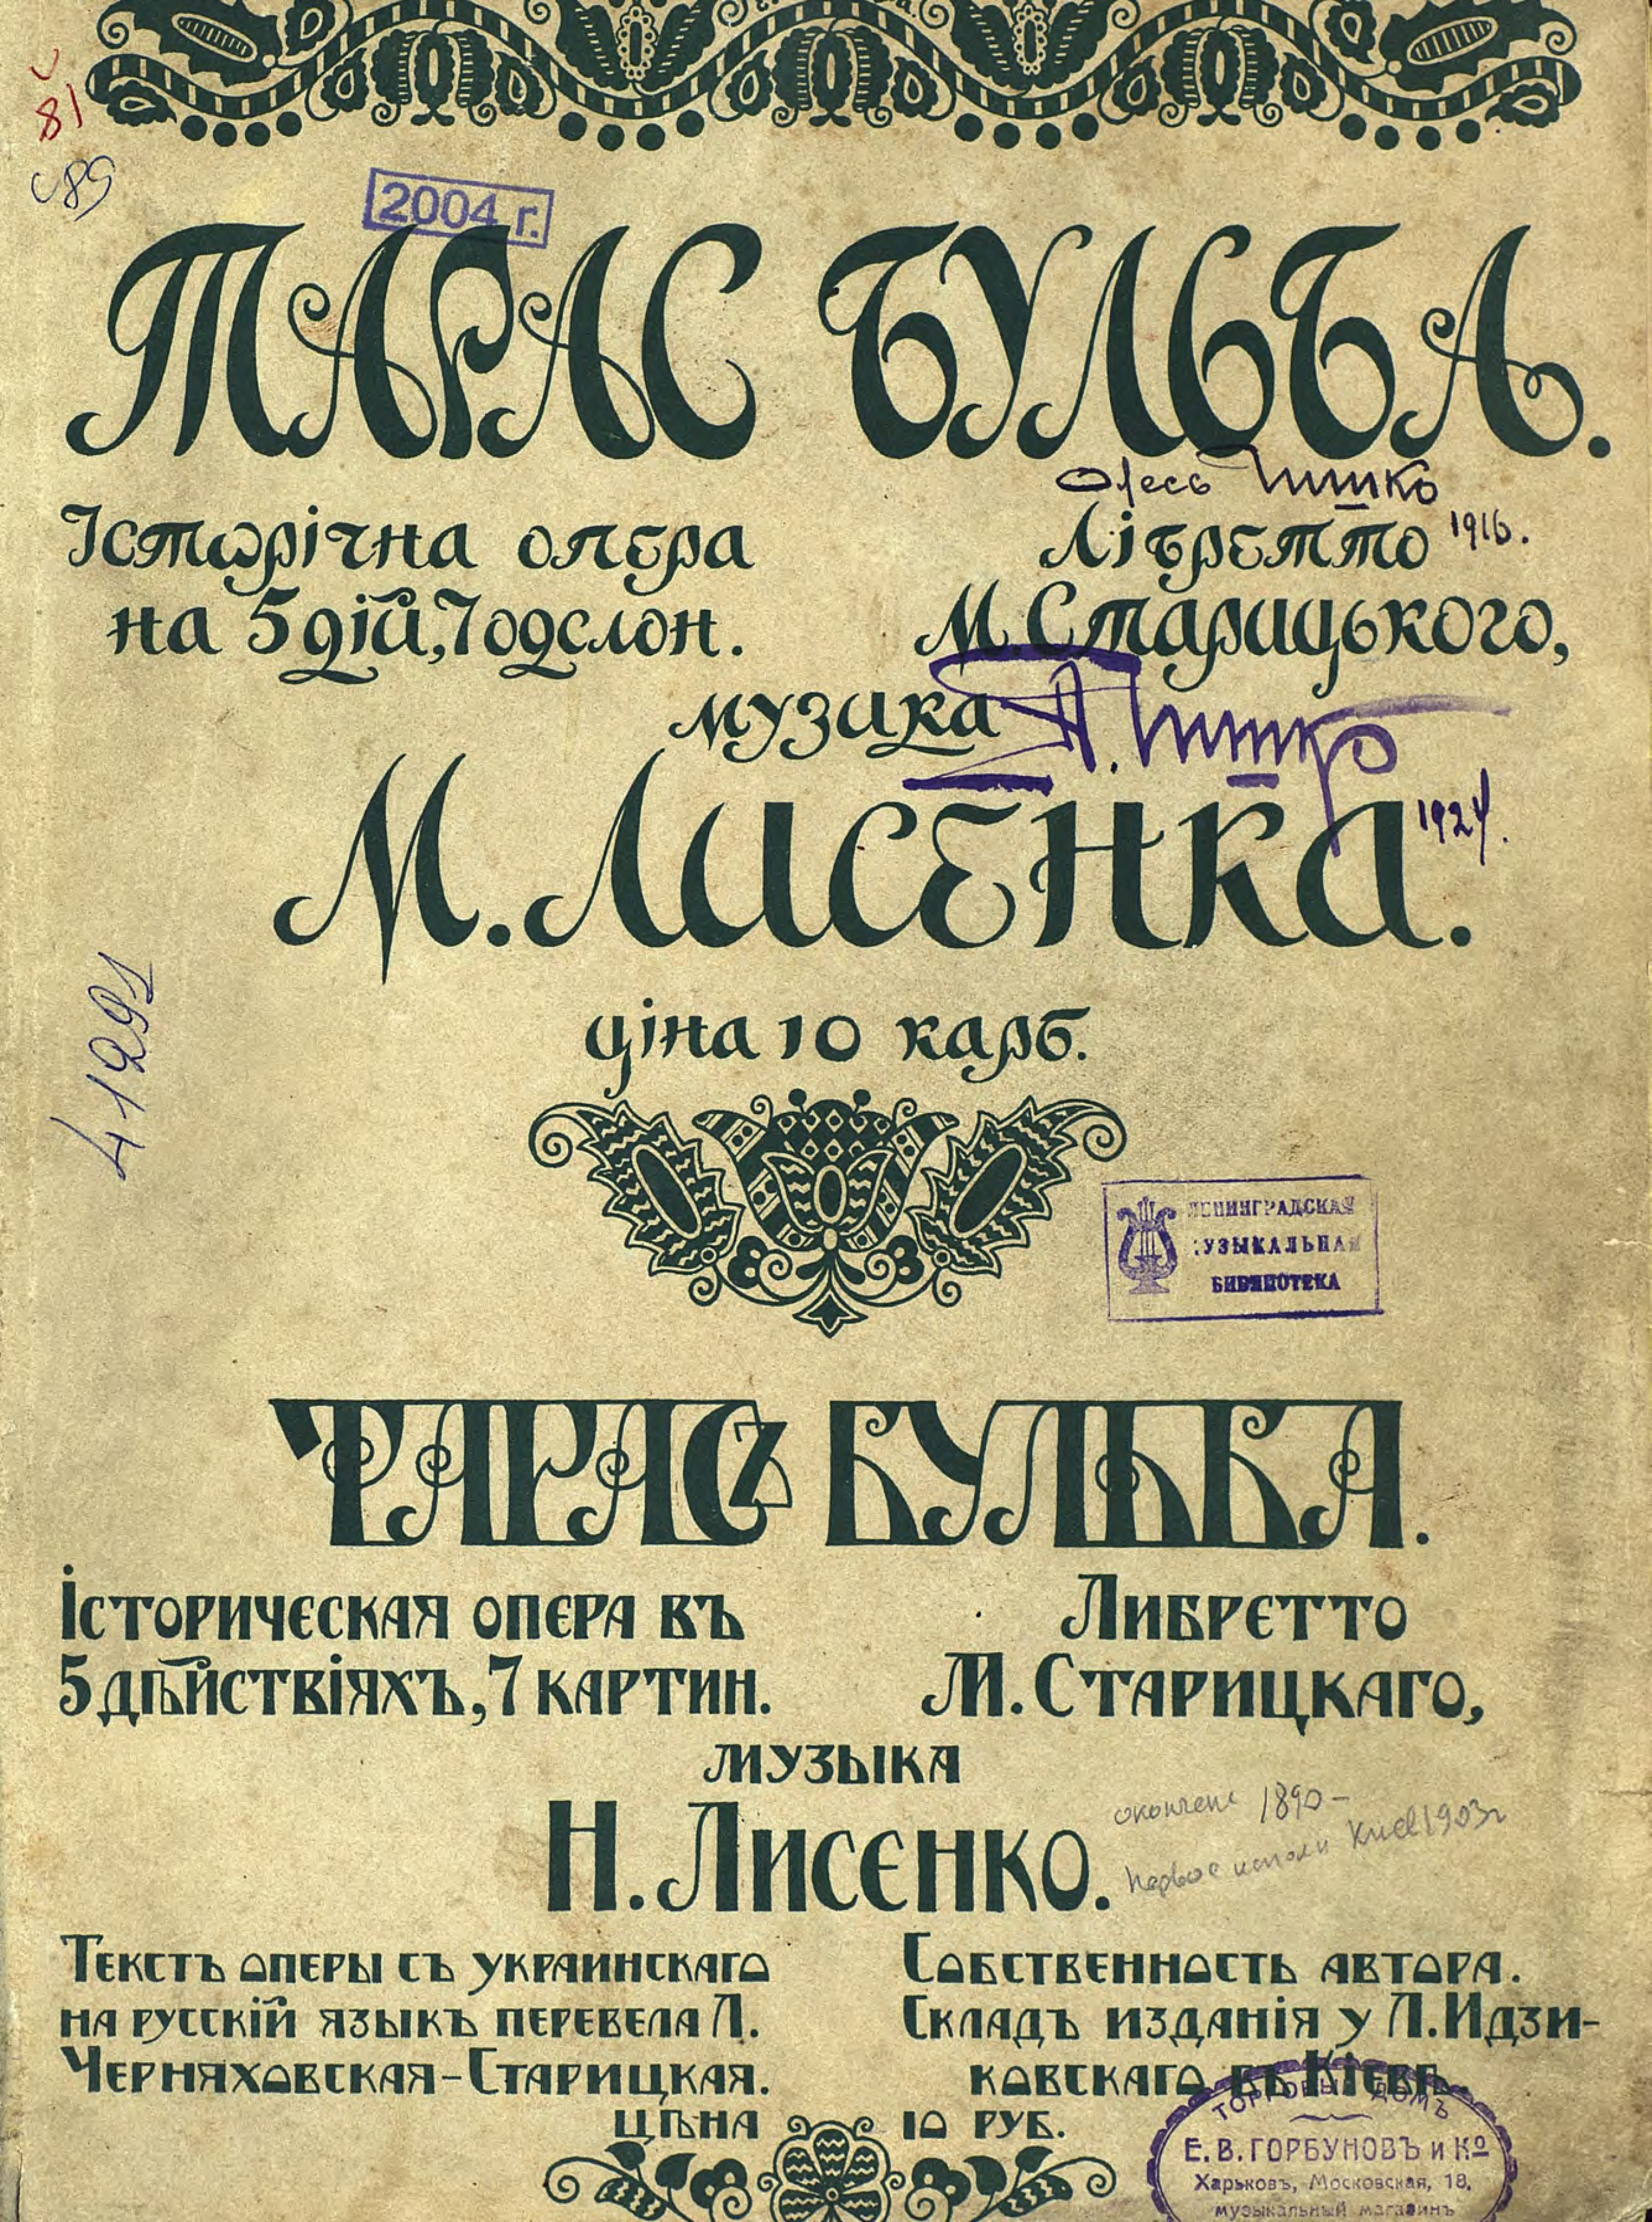 81
89
2004 г.
ТАРАС БУЛЬБА.
Олесь
1916.
Історічна опера
на 5 дій, 7 одслон.
Лібретто
М. Старицького,
музика
М. Лисенка.
1924.
ціна 10 карб.
41291
ЛЕНИНГРАДСКАЯ
МУЗЫКАЛЬНАЯ
БИБЛИОТЕКА
ТАРАСЪ БУЛЬБА.
Історическая опера въ
5 дѣйствіяхъ, 7 картин.
Либретто
М. Старицкаго,
музыка
Н. Лисенко.
окончена 1890 -
первое Киев 1903 г
Текстъ оперы съ украинскаго
на русскій языкъ перевела Л.
Черняховская-Старицкая.
Собственность автора.
Складъ изданія у Л. Идзи-
ковскаго въ Кіевѣ.
цѣна 10 руб.
ТОРГОВЫЙ ДОМЪ
Е. В. ГОРБУНОВЪ и Кº
Харьковъ, Московская, 18.
музыкальный магазинъ